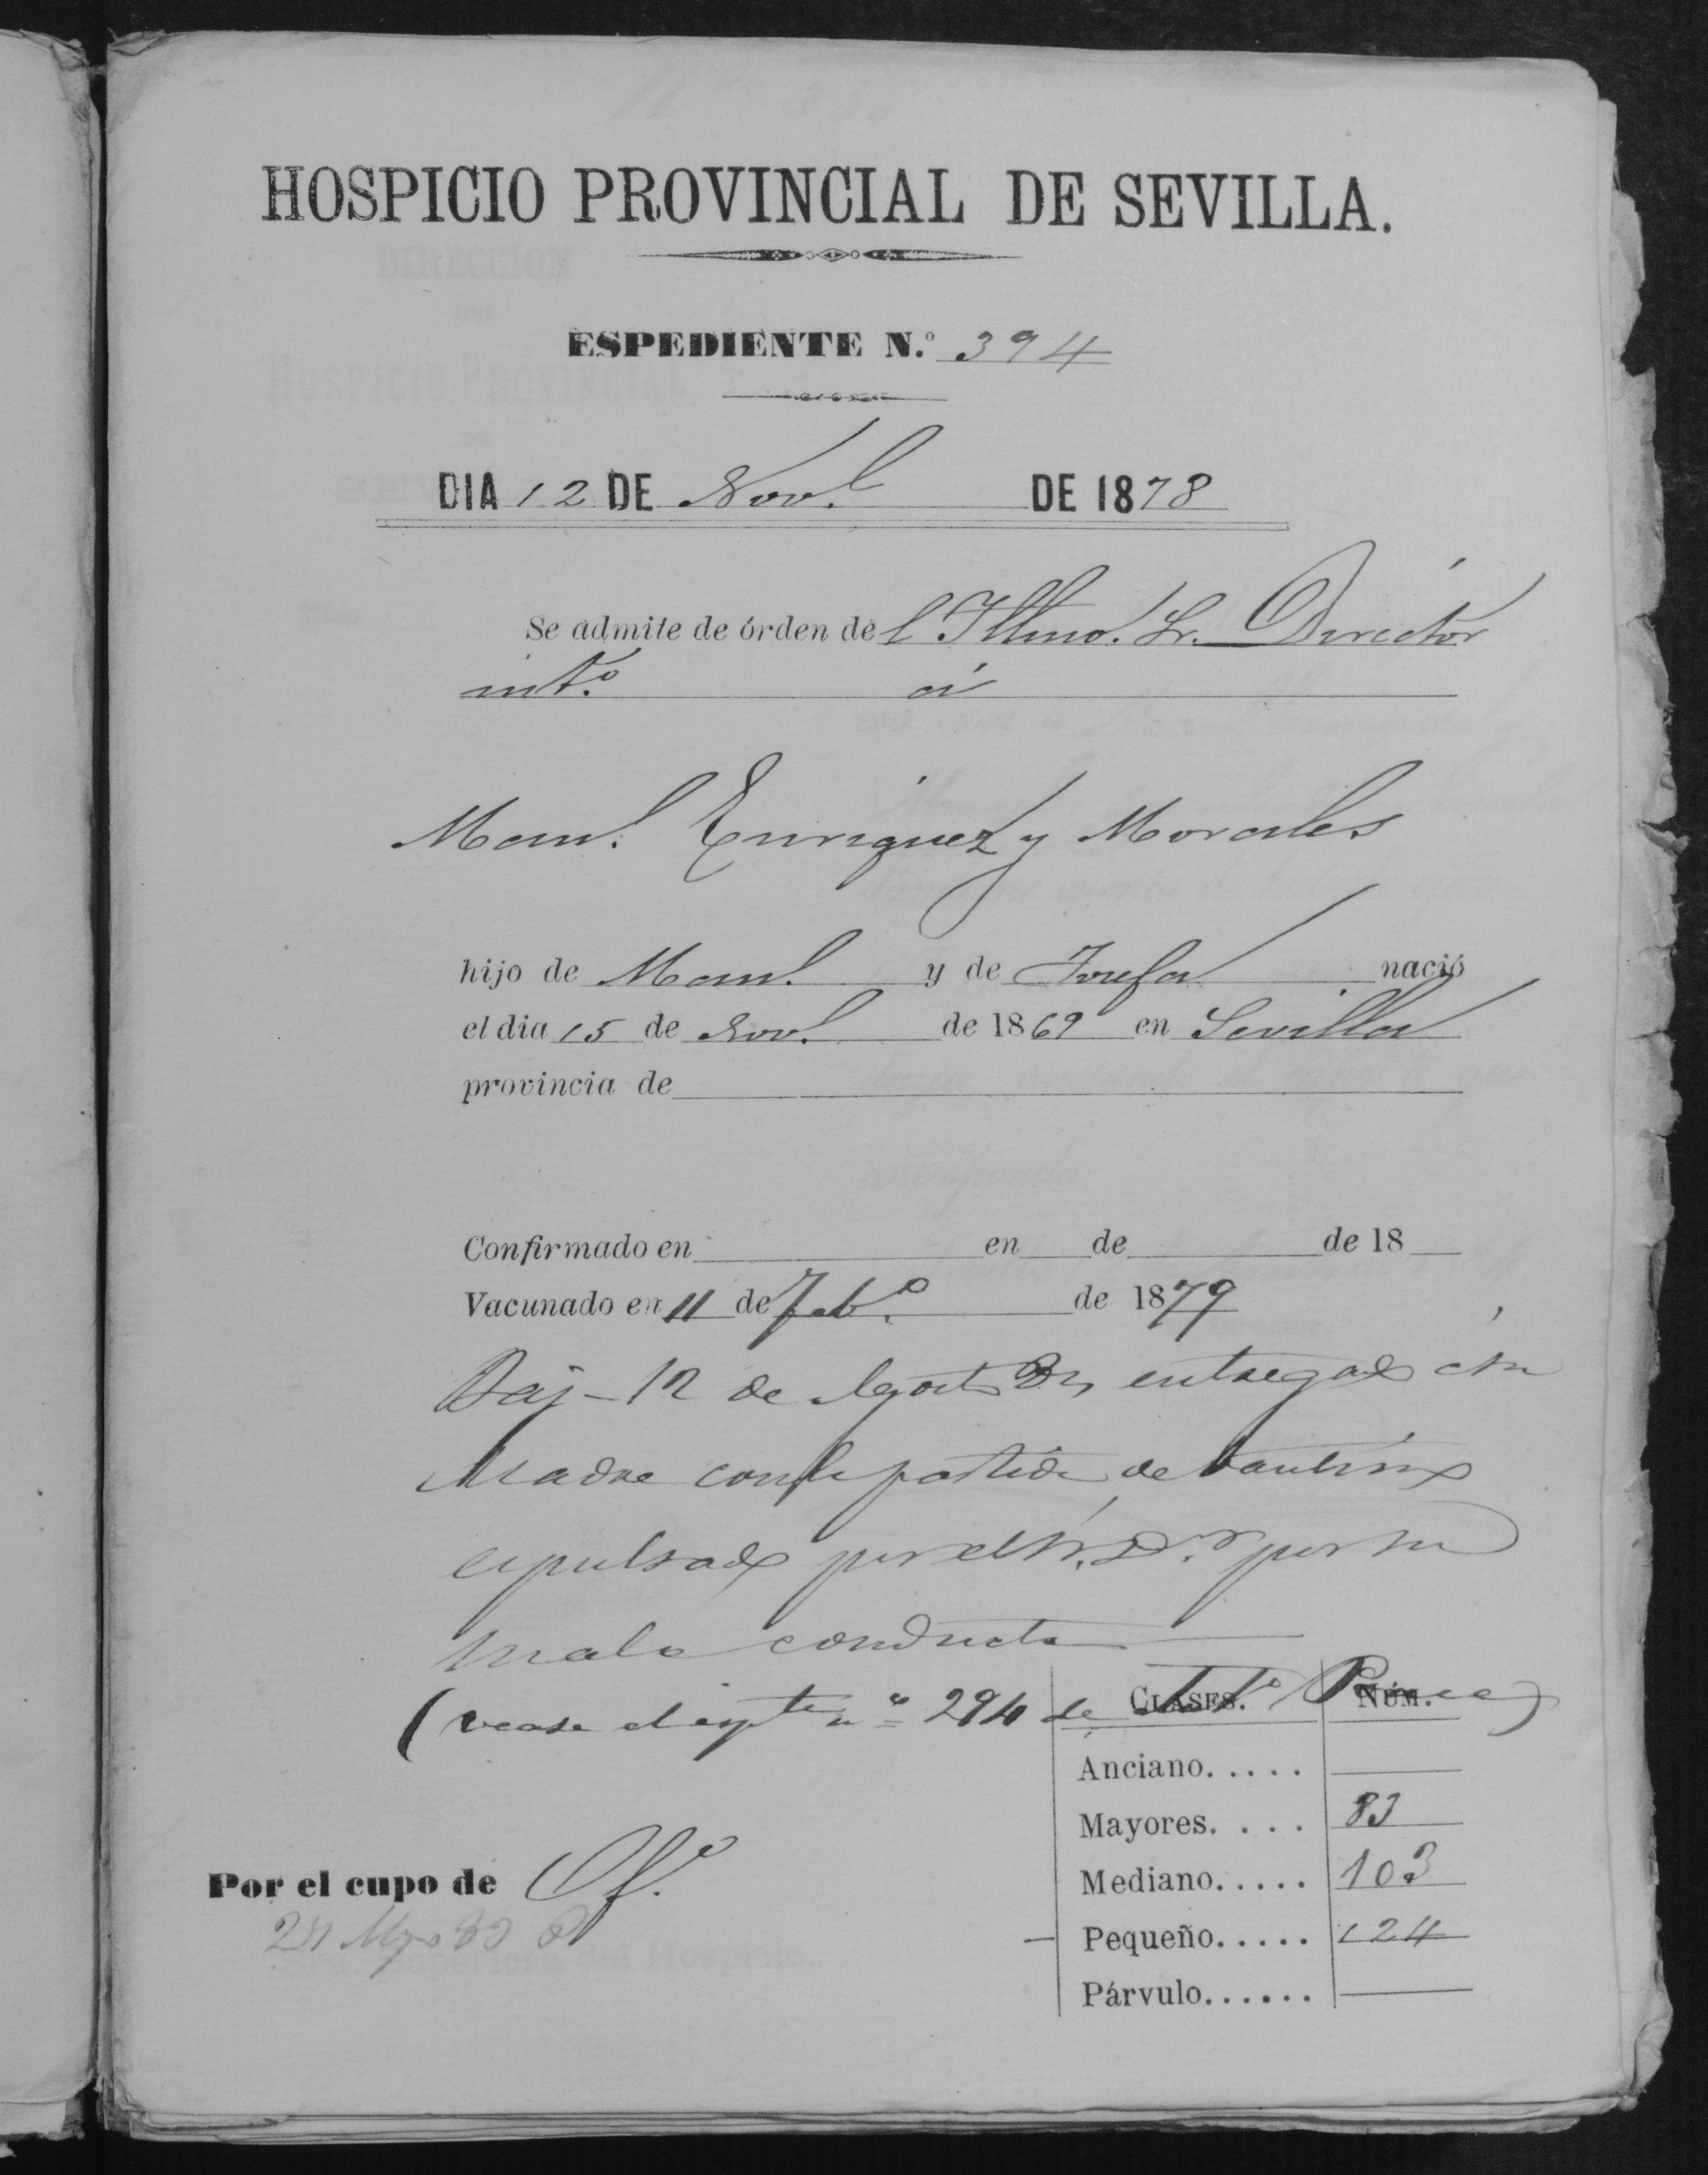 HOSPICIO PROVINCIAL DE SEVILLA.
ESPEDIENTE N.º 394
DIA 12 DE Novl. DE 1878
Se admite de órden del Illmo. Sr. Director
intº. á
Manl. Enriquez y Morales
hijo de Manl. y de Josefa nació
el dia 15 de Novl. de 1869 en Sevilla
provincia de
Confirmado en en de de 18
Vacunado en 11 de Febº. de 1879
12 de Agosto entregado á su
Madre con la partida de bautismo
espulsado por el Sr. Dr. por su
mala conducta
(vease el espte nº 294 de
CLASES. NÚM.
Anciano.....
Mayores.... 83
Mediano..... 103
Pequeño..... 124
Párvulo......
Por el cupo de